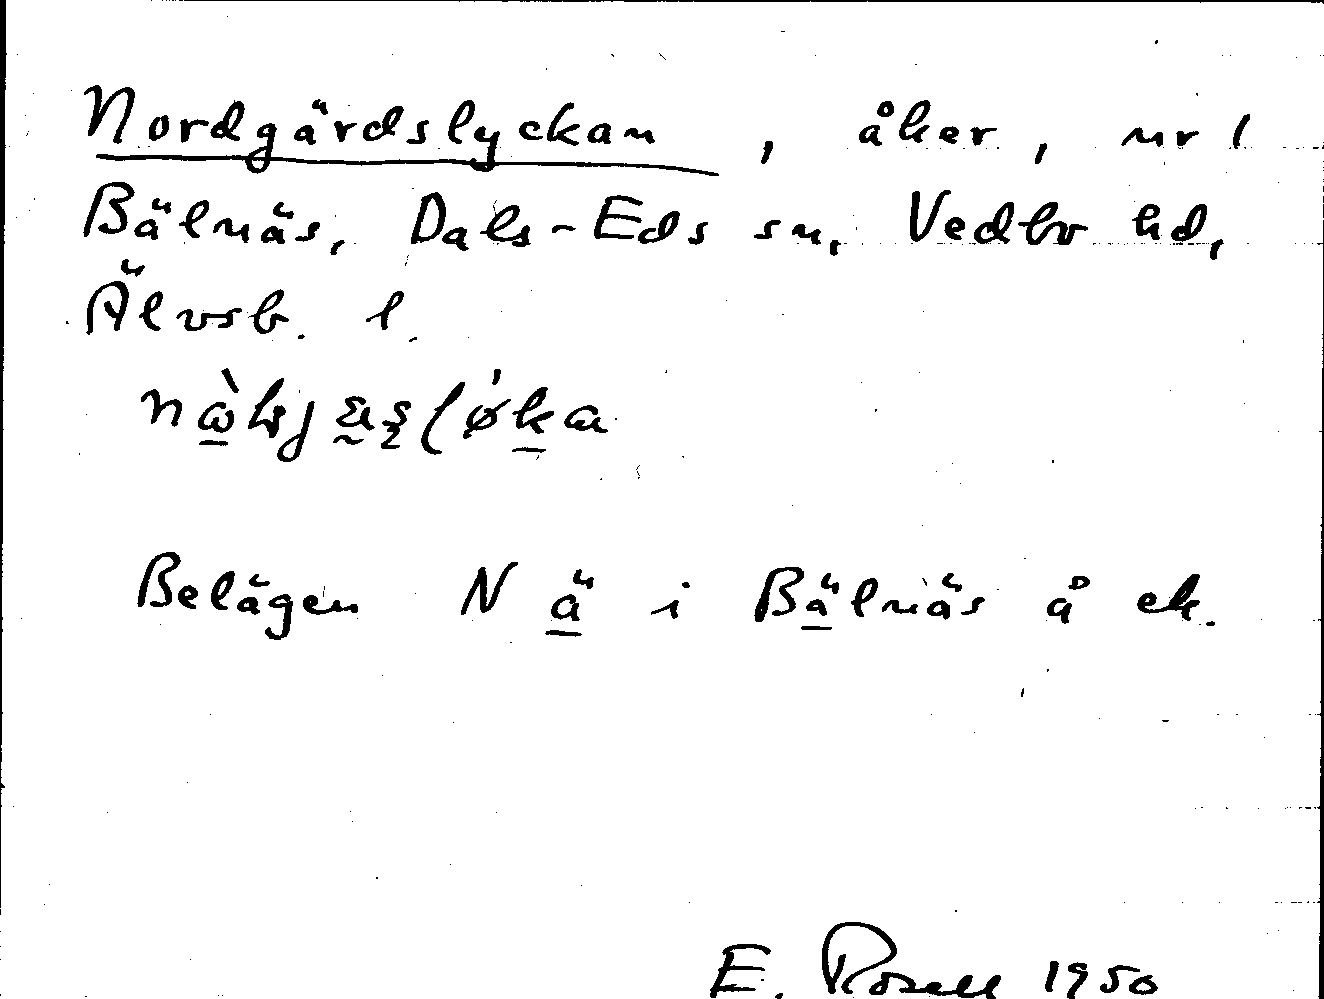 Nordgärdslyckan, åker, nr 1
Bälnäs, Dals-Eds sn, Vedbo hd,
Älvsb. l.
Belägen N ä i Bälnäs å ek.
E. Rosell 1950